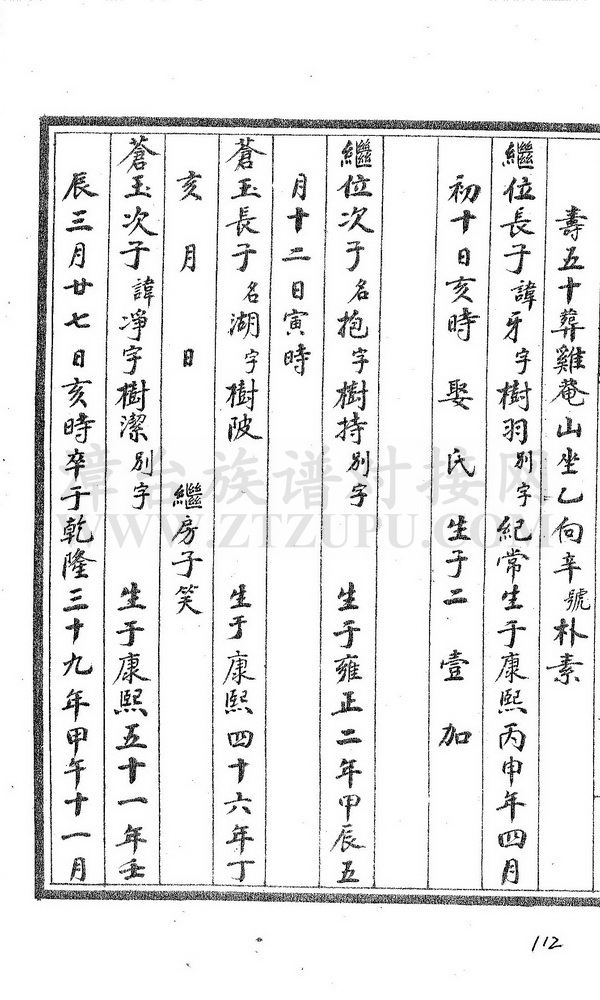 壽五十葬雞菴山坐乙向辛號朴素
繼位長子諱牙字樹羽別字紀常生于康熙丙申年四月
初十日亥時 娶 氏 生子二 壹 加
繼位次子名抱字樹持別字 生于雍正二年甲辰五
月十二日寅時
蒼玉長子名湖字樹陂 生于康熙四十六年丁
亥 月 日 繼房子笑
蒼玉次子諱凈字樹潔別字 生于康熙五十一年壬
辰三月廿七日亥時卒于乾隆三十九年甲午十一月
漳台族谱对接网
WWW.ZTZUPU.COM
112